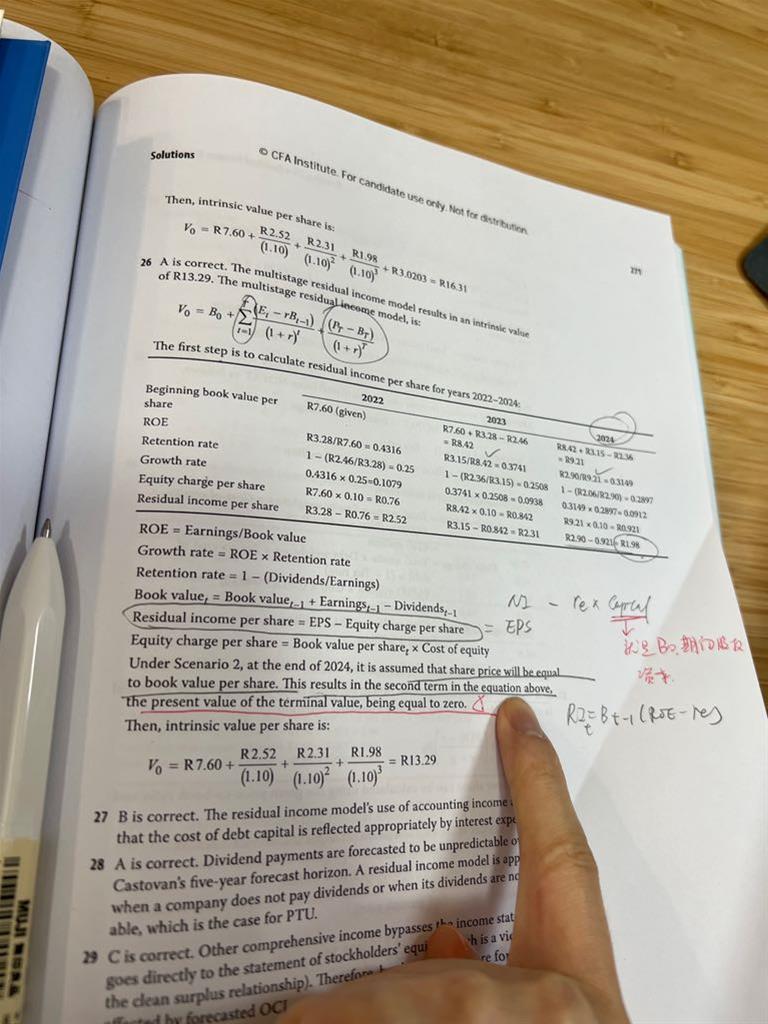 Solutions
© CFA Institute. For candidate use only. Not for distribution.
271
Then, intrinsic value per share is:
V₀ = R7.60 + R2.52/(1.10) + R2.31/(1.10)² + R1.98/(1.10)³ + R3.0203 = R16.31
26 A is correct. The multistage residual income model results in an intrinsic value
of R13.29. The multistage residual income model, is:
V₀ = B₀ + Σ_{t=1}^{T} (E_t − rB_{t−1})/(1 + r)^t + (P_T − B_T)/(1 + r)^T
The first step is to calculate residual income per share for years 2022–2024:
2022 2023 2024
Beginning book value per share R7.60 (given) R7.60 + R3.28 − R2.46 = R8.42 R8.42 + R3.15 − R2.36 = R9.21
ROE R3.28/R7.60 = 0.4316 R3.15/R8.42 = 0.3741 R2.90/R9.21 = 0.3149
Retention rate 1 − (R2.46/R3.28) = 0.25 1 − (R2.36/R3.15) = 0.2508 1 − (R2.06/R2.90) = 0.2897
Growth rate 0.4316 × 0.25=0.1079 0.3741 × 0.2508 = 0.0938 0.3149 × 0.2897= 0.0912
Equity charge per share R7.60 × 0.10 = R0.76 R8.42 × 0.10 = R0.842 R9.21 × 0.10 = R0.921
Residual income per share R3.28 − R0.76 = R2.52 R3.15 − R0.842 = R2.31 R2.90 − 0.921= R1.98
ROE = Earnings/Book value
Growth rate = ROE × Retention rate
Retention rate = 1 − (Dividends/Earnings)
Book value_t = Book value_{t−1} + Earnings_{t−1} − Dividends_{t−1}
NI − re × Capital
Residual income per share = EPS − Equity charge per share = EPS
Equity charge per share = Book value per share_t × Cost of equity
就是B₀,期初股权
资本
Under Scenario 2, at the end of 2024, it is assumed that share price will be equal
to book value per share. This results in the second term in the equation above,
the present value of the terminal value, being equal to zero.
RI_t = B_{t−1} (ROE − re)
Then, intrinsic value per share is:
V₀ = R7.60 + R2.52/(1.10) + R2.31/(1.10)² + R1.98/(1.10)³ = R13.29
27 B is correct. The residual income model's use of accounting income
that the cost of debt capital is reflected appropriately by interest
28 A is correct. Dividend payments are forecasted to be unpredictable
Castovan's five-year forecast horizon. A residual income model is
when a company does not pay dividends or when its dividends are
able, which is the case for PTU.
29 C is correct. Other comprehensive income bypasses the income
goes directly to the statement of stockholders' is a
the clean surplus relationship). Therefore
by forecasted OCI
MUJI